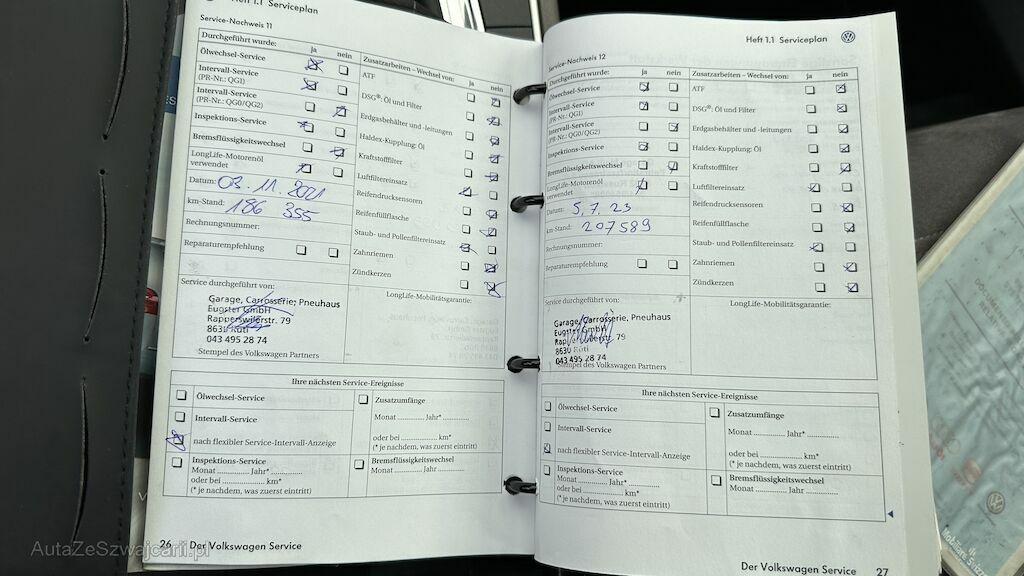 Heft 1.1 Serviceplan
Service-Nachweis 11
Durchgeführt wurde: ja nein
Ölwechsel-Service
Intervall-Service
(PR-Nr.: QG1)
Intervall-Service
(PR-Nr.: QG0/QG2)
Inspektions-Service
Bremsflüssigkeitswechsel
LongLife-Motorenöl
verwendet
Datum: 03.11.2021
km-Stand: 186 355
Rechnungsnummer:
Reparaturempfehlung
Zusatzarbeiten – Wechsel von: ja nein
ATF
DSG®: Öl und Filter
Erdgasbehälter und -leitungen
Haldex-Kupplung: Öl
Kraftstofffilter
Luftfiltereinsatz
Reifendrucksensoren
Reifenfüllflasche
Staub- und Pollenfiltereinsatz
Zahnriemen
Zündkerzen
Service durchgeführt von:
Garage, Carrosserie, Pneuhaus
Eugster GmbH
Rapperswilerstr. 79
8630 Rüti
043 495 28 74
Stempel des Volkswagen Partners
LongLife-Mobilitätsgarantie:
Ihre nächsten Service-Ereignisse
Ölwechsel-Service
Intervall-Service
nach flexibler Service-Intervall-Anzeige
Inspektions-Service
Monat ............ Jahr* ............
oder bei ............ km*
(* je nachdem, was zuerst eintritt)
Zusatzumfänge
Monat ............ Jahr* ............
oder bei ............ km*
(* je nachdem, was zuerst eintritt)
Bremsflüssigkeitswechsel
Monat ............ Jahr ............
26 Der Volkswagen Service
Heft 1.1 Serviceplan
Service-Nachweis 12
Durchgeführt wurde: ja nein
Ölwechsel-Service
Intervall-Service
(PR-Nr.: QG1)
Intervall-Service
(PR-Nr.: QG0/QG2)
Inspektions-Service
Bremsflüssigkeitswechsel
LongLife-Motorenöl
verwendet
Datum: 5.7.23
km-Stand: 207589
Rechnungsnummer:
Reparaturempfehlung
Zusatzarbeiten – Wechsel von: ja nein
ATF
DSG®: Öl und Filter
Erdgasbehälter und -leitungen
Haldex-Kupplung: Öl
Kraftstofffilter
Luftfiltereinsatz
Reifendrucksensoren
Reifenfüllflasche
Staub- und Pollenfiltereinsatz
Zahnriemen
Zündkerzen
Service durchgeführt von:
Garage, Carrosserie, Pneuhaus
Eugster GmbH
79
8630 Rüti
043 495 28 74
Stempel des Volkswagen Partners
LongLife-Mobilitätsgarantie:
Ihre nächsten Service-Ereignisse
Ölwechsel-Service
Intervall-Service
nach flexibler Service-Intervall-Anzeige
Inspektions-Service
Monat ............ Jahr* ............
oder bei ............ km*
(* je nachdem, was zuerst eintritt)
Zusatzumfänge
Monat ............ Jahr* ............
oder bei ............ km*
(* je nachdem, was zuerst eintritt)
Bremsflüssigkeitswechsel
Monat ............ Jahr ............
Der Volkswagen Service 27
AutaZeSzwajcarii.pl